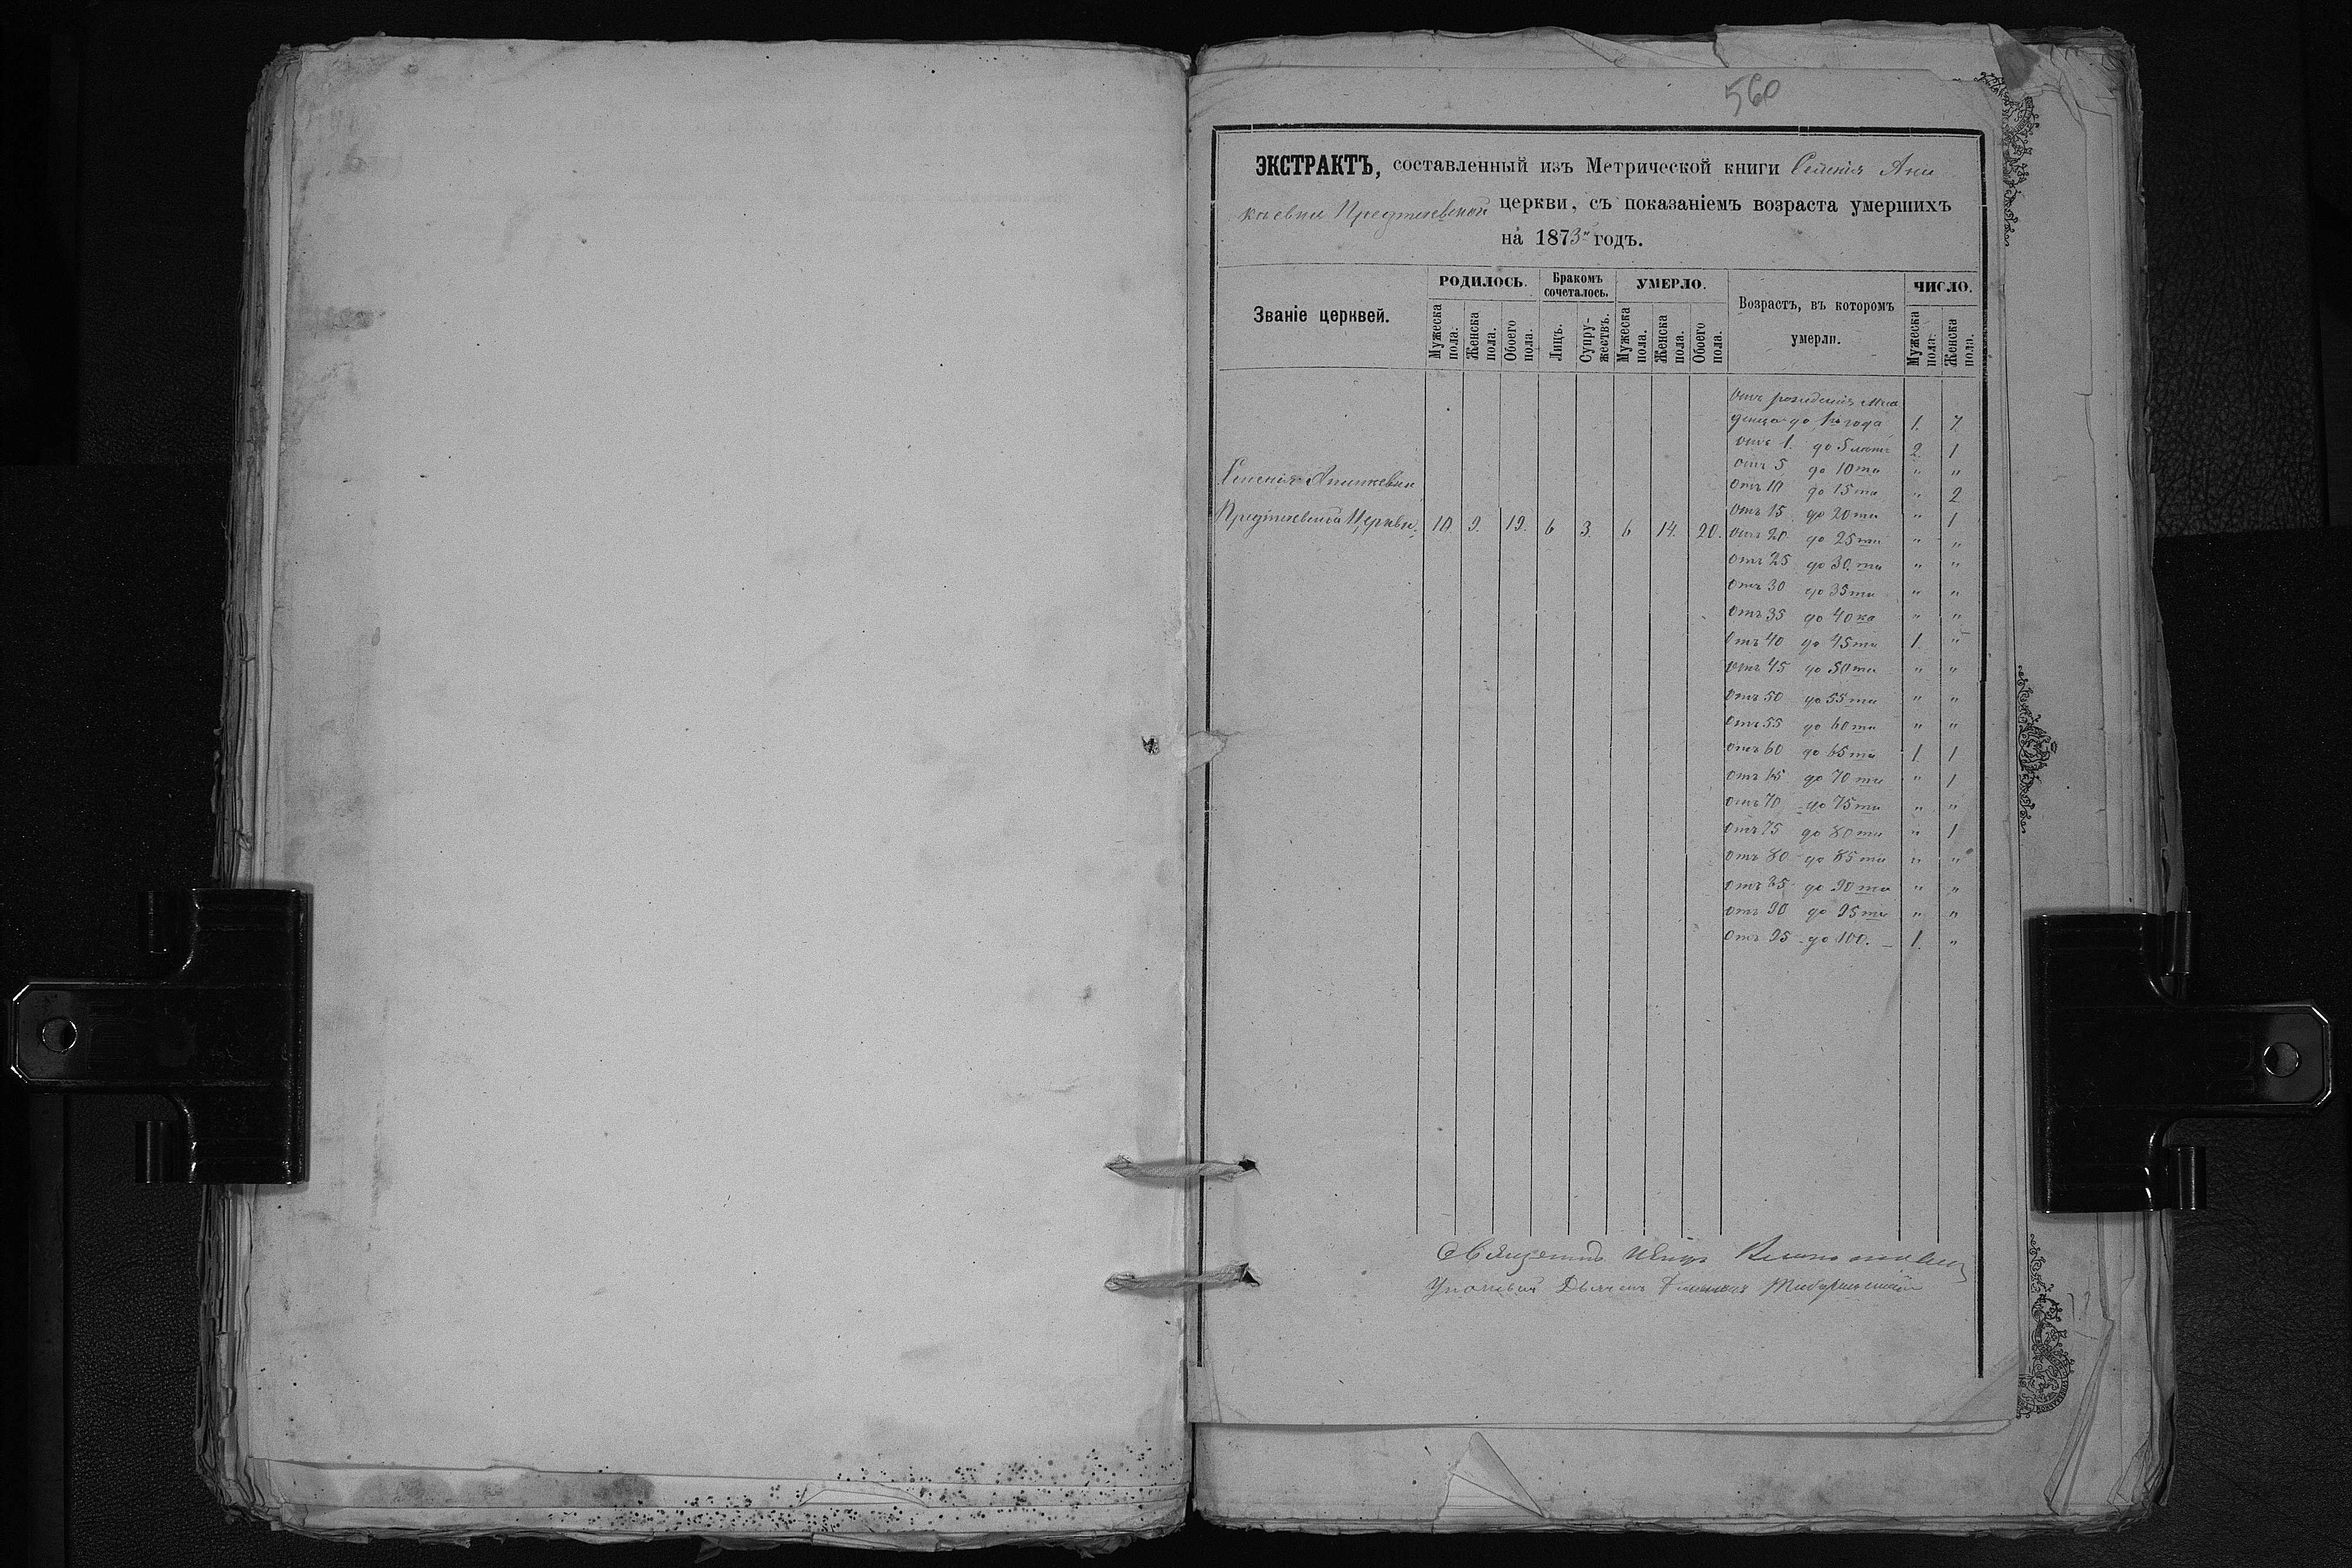 560
ЭКСТРАКТЪ, составленный изъ Метрической книги Селенія Ани
каевки Предтечевской церкви, съ показаніемъ возраста умершихъ
на 1873 годъ.
Званіе церквей.
РОДИЛОСЬ. Бракомъ сочеталось. УМЕРЛО. Возрастъ, въ которомъ умерли. ЧИСЛО.
Мужеска пола. Женска пола. Обоего пола. Лицъ. Супружествъ. Мужеска пола. Женска пола. Обоего пола. Мужеска пола. Женска пола.
Отъ рожденія мла
денца до 1го года 1. 7.
отъ 1. до 5 лѣтъ 2. 1
отъ 5 до 10ти " "
Селенія
отъ 10 до 15ти " 2
отъ 15 до 20ти " 1
Церкви. 10. 9. 19. 6 3. 6 14. 20. отъ 20 до 25ти " "
отъ 25 до 30ти " "
отъ 30 до 35ти " "
отъ 35 до 40ка " "
отъ 40 до 45ти 1. "
отъ 45 до 50ти " "
отъ 50 до 55ти " "
отъ 55 до 60ти " "
отъ 60 до 65ти 1. 1
отъ 65 до 70ти " 1
отъ 70 до 75ти " "
отъ 75 до 80ти " 1
отъ 80 до 85ти " "
отъ 85 до 90то " "
отъ 90 до 95ти " "
отъ 95 до 100. 1. "
Священникъ
Дьячекъ